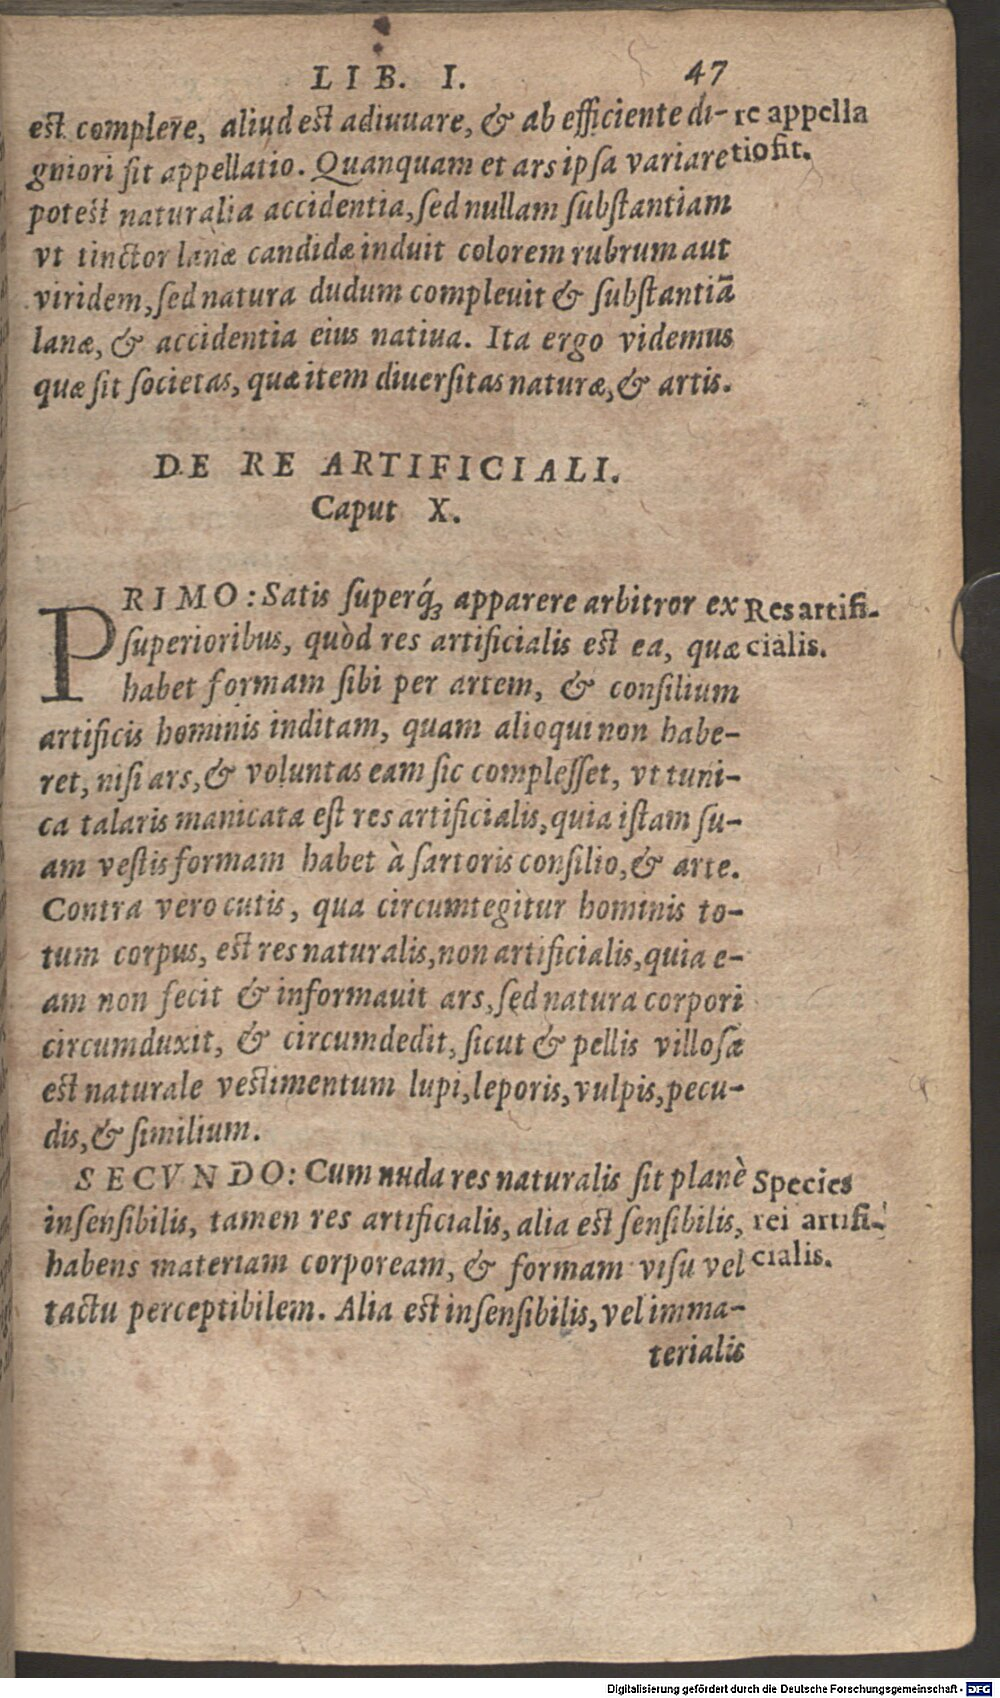 LIB. I. 47
est complere, aliud est adiuuare, & ab efficiente di-
gniori sit appellatio. Quanquam et ars ipsa variare
potest naturalia accidentia, sed nullam substantiam
vt tinctor lanæ candidæ induit colorem rubrum aut
viridem, sed natura dudum compleuit & substantiã
lanæ, & accidentia eius natiua. Ita ergo videmus
quæ sit societas, quæ item diuersitas naturæ, & artis.
re appella
tio fit.
DE RE ARTIFICIALI.
Caput X.
PRIMO: Satis superq́ꝫ apparere arbitror ex
superioribus, quòd res artificialis est ea, quæ
habet formam sibi per artem, & consilium
artificis hominis inditam, quam alioqui non habe-
ret, nisi ars, & voluntas eam sic complesset, vt tuni-
ca talaris manicata est res artificialis, quia istam su-
am vestis formam habet à sartoris consilio, & arte.
Contra vero cutis, qua circumtegitur hominis to-
tum corpus, est res naturalis, non artificialis, quia e-
am non fecit & informauit ars, sed natura corpori
circumduxit, & circumdedit, sicut & pellis villosa
est naturale vestimentum lupi, leporis, vulpis, pecu-
dis, & similium.
Res artifi-
cialis.
SECVNDO: Cum nuda res naturalis sit planè
insensibilis, tamen res artificialis, alia est sensibilis,
habens materiam corpoream, & formam visu vel
tactu perceptibilem. Alia est insensibilis, vel imma-
terialis
Species
rei artifi-
cialis.
Digitalisierung gefördert durch die Deutsche Forschungsgemeinschaft - DFG